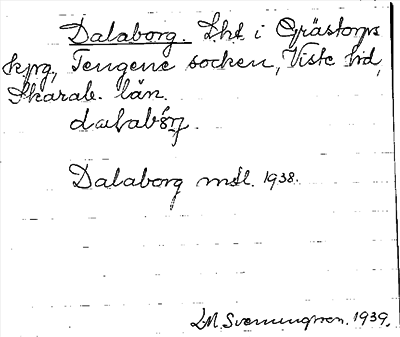 Dalaborg. Lht i Grästorps
kpg, Tengene socken, Viste hd,
Skarab. län.
Dalaborg mtl. 1938.
L.M. Svenningsson. 1939.